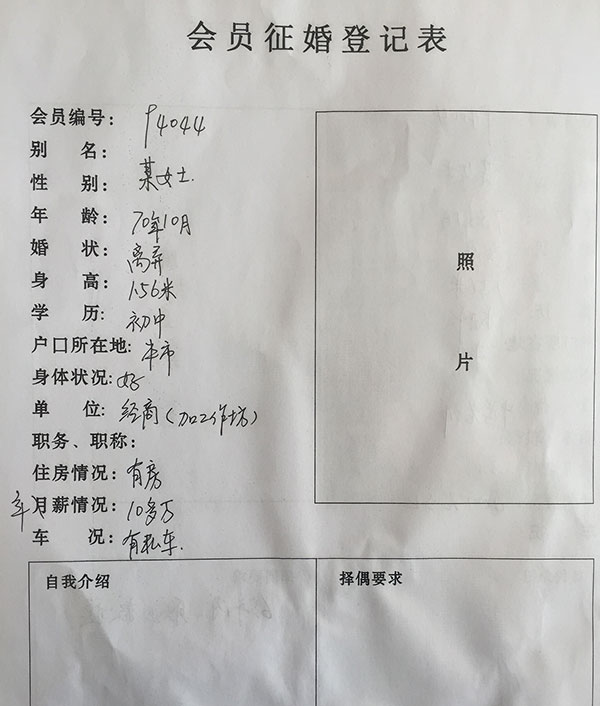 会员征婚登记表
会员编号: 94044
别 名:
性 别: 某女士.
年 龄: 70年10月
婚 状: 离异
身 高: 1.56米
学 历: 初中
户口所在地: 本市
身体状况: 好
单 位: 经商(加工作坊)
职务、职称:
住房情况: 有房
年月薪情况: 10多万
车 况: 有私车.
照
片
自我介绍
择偶要求